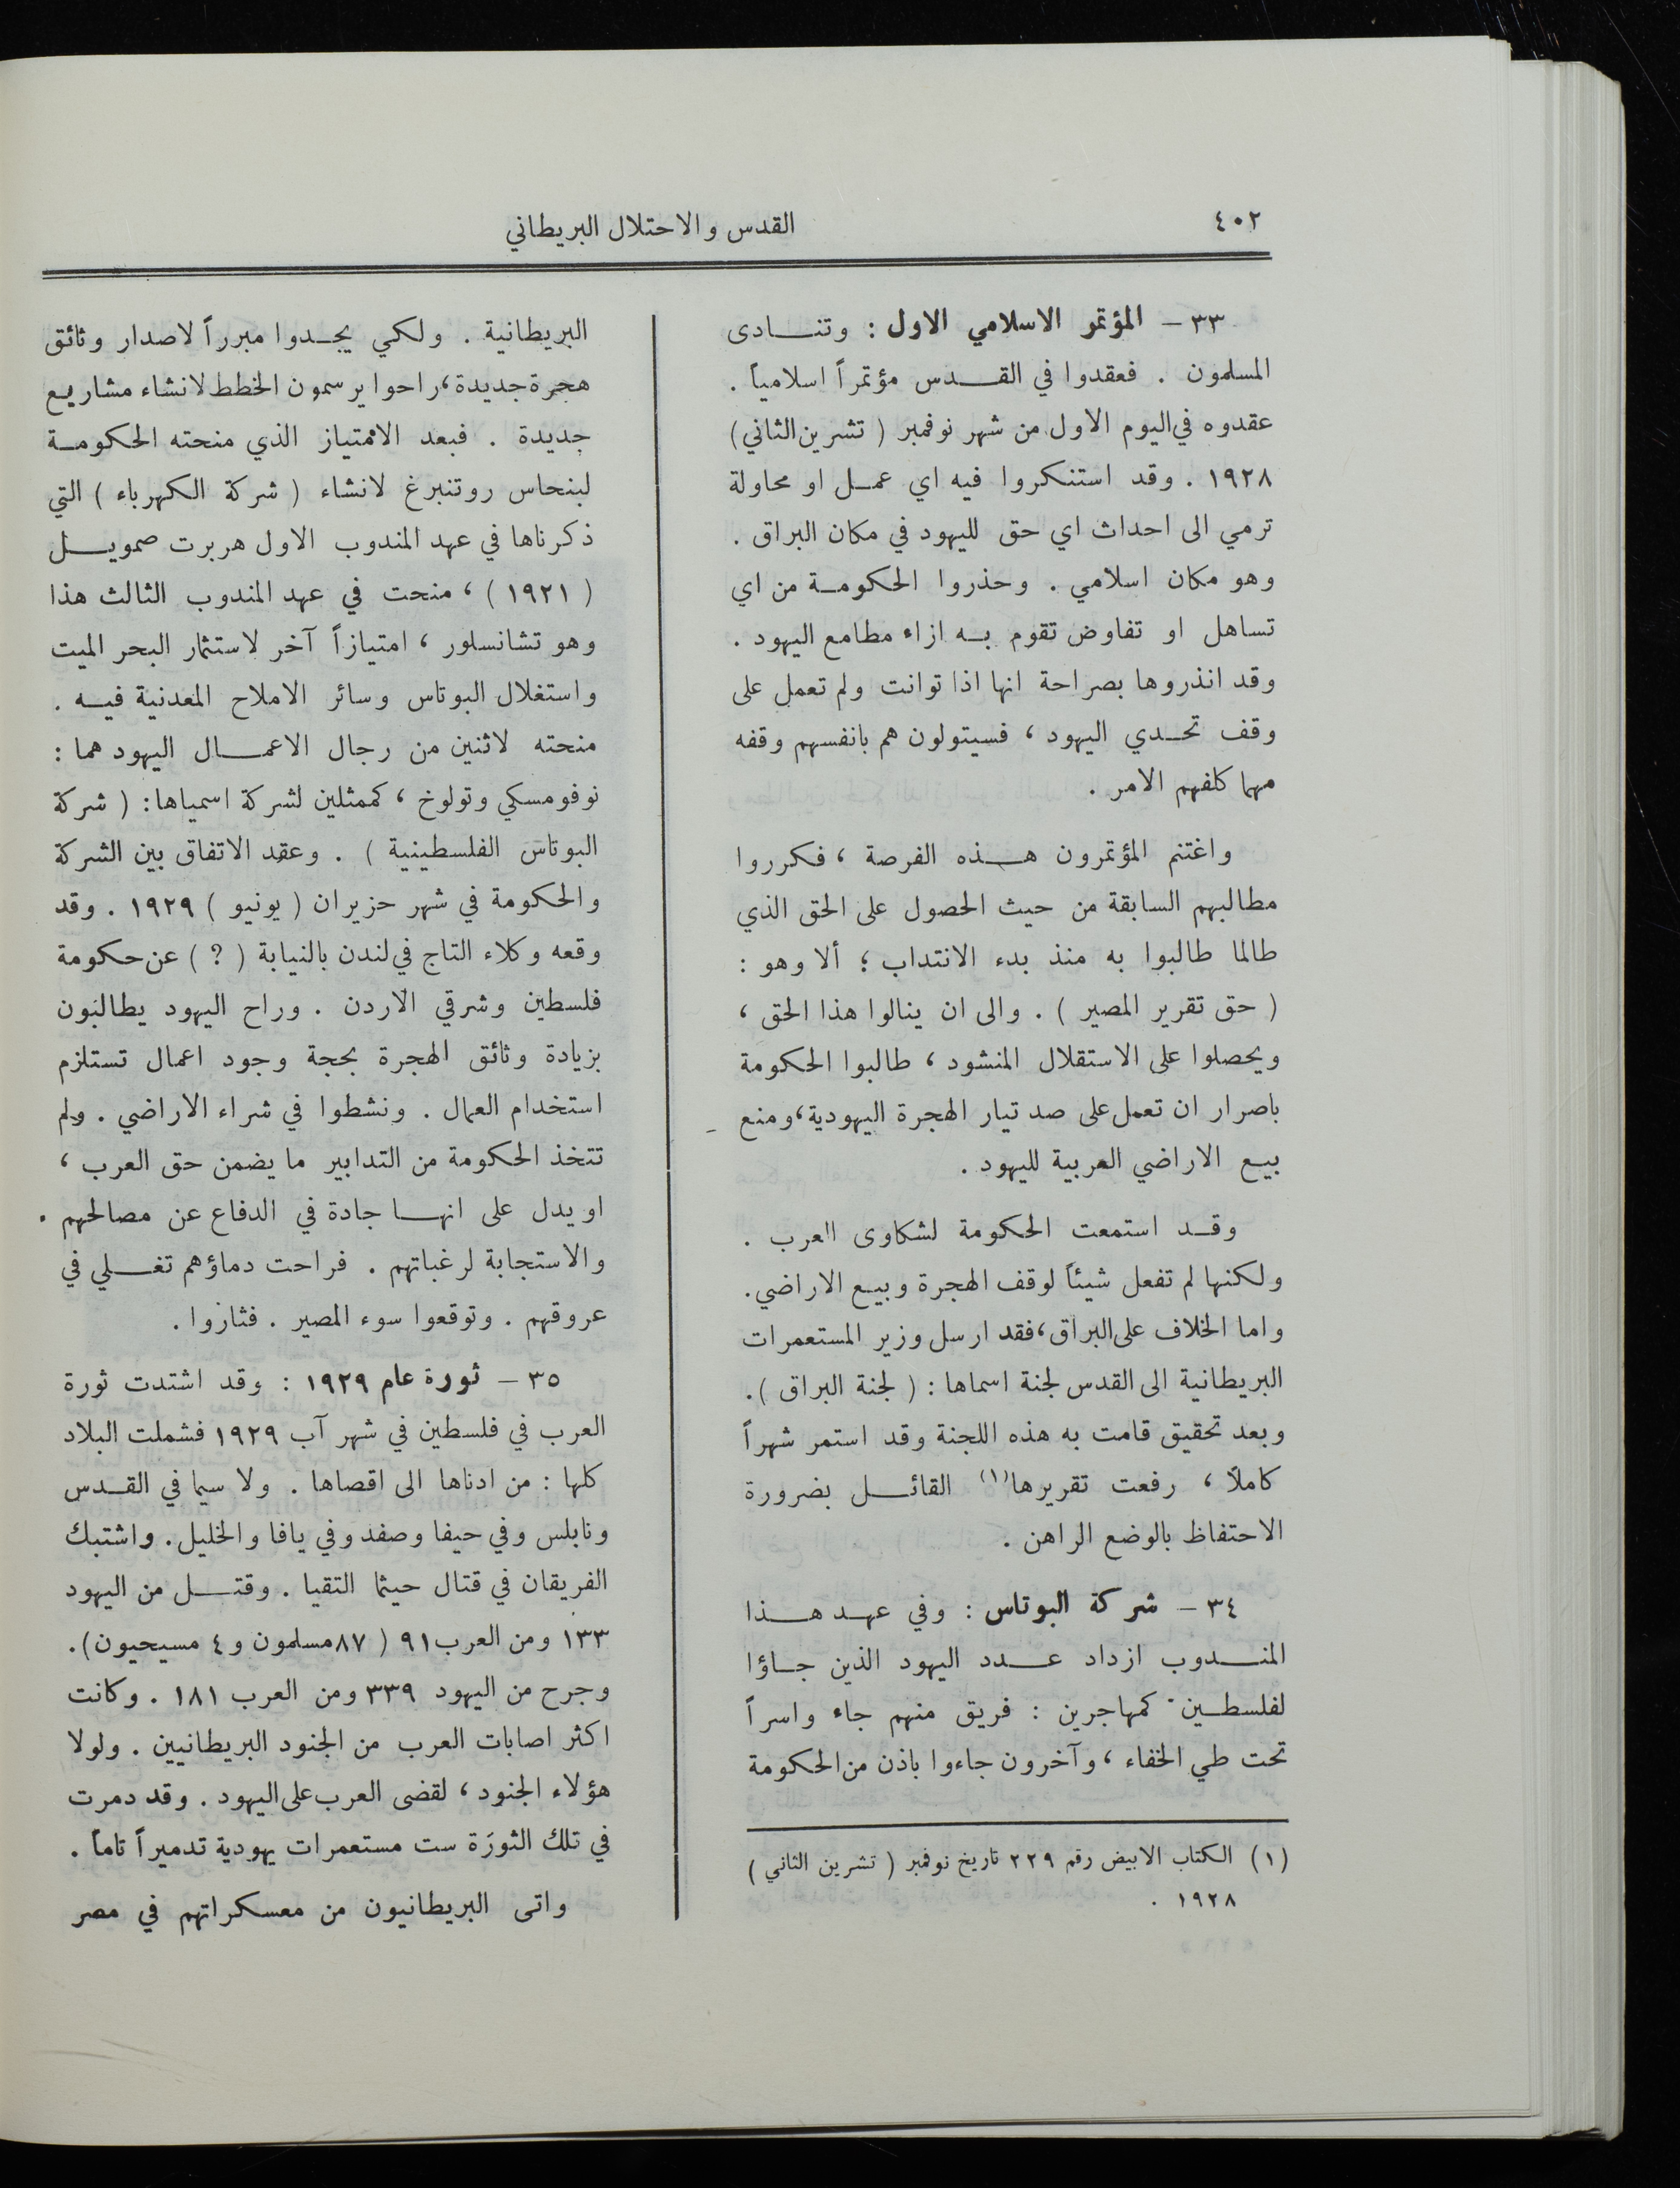 ٤٠٢
القدس والاحتلال البريطاني
٣٣ – المؤتمر الاسلامي الاول : وتنادى
المسلمون . فعقدوا في القدس مؤتمراً اسلامياً .
عقدوه في اليوم الاول من شهر نوفمبر ( تشرين الثاني )
١٩٢٨ . وقد استنكروا فيه اي عمل او محاولة
ترمي الى احداث اي حق لليهود في مكان البراق .
وهو مكان اسلامي . وحذروا الحكومة من اي
تساهل او تفاوض تقوم به ازاء مطامع اليهود .
وقد انذروها بصراحة انها اذا توانت ولم تعمل على
وقف تحدي اليهود ، فسيتولون هم بانفسهم وقفه
مهما كلفهم الامر .
واغتنم المؤتمرون هذه الفرصة ، فكرروا
مطالبهم السابقة من حيث الحصول على الحق الذي
طالما طالبوا به منذ بدء الانتداب ؛ ألا وهو :
( حق تقرير المصير ) . والى ان ينالوا هذا الحق ،
ويحصلوا على الاستقلال المنشود ، طالبوا الحكومة
باصرار ان تعمل على صد تيار الهجرة اليهودية ، ومنع
بيع الاراضي العربية لليهود .
وقد استمعت الحكومة لشكاوى العرب .
ولكنها لم تفعل شيئاً لوقف الهجرة وبيع الاراضي .
واما الخلاف على البراق ، فقد ارسل وزير المستعمرات
البريطانية الى القدس لجنة اسماها : ( لجنة البراق ) .
وبعد تحقيق قامت به هذه اللجنة وقد استمر شهراً
كاملاً ، رفعت تقريرها(١) القائل بضرورة
الاحتفاظ بالوضع الراهن .
٣٤ – شركة البوتاس : وفي عهد هذا
المندوب ازداد عدد اليهود الذين جاؤا
لفلسطين كمهاجرين : فريق منهم جاء واسراً
تحت طي الخفاء ، وآخرون جاءوا باذن من الحكومة
(١) الكتاب الابيض رقم ٢٢٩ تاريخ نوفمبر ( تشرين الثاني )
١٩٢٨ .
البريطانية . ولكي يجدوا مبرراً لاصدار وثائق
هجرة جديدة ، راحوا يرسمون الخطط لانشاء مشاريع
جديدة . فبعد الامتياز الذي منحته الحكومة
لبنحاس روتنبرغ لانشاء ( شركة الكهرباء ) التي
ذكرناها في عهد المندوب الاول هربرت صمويل
( ١٩٢١ ) ، منحت في عهد المندوب الثالث هذا
وهو تشانسلور ، امتيازاً آخر لاستثمار البحر الميت
واستغلال البوتاس وسائر الاملاح المعدنية فيه .
منحته لاثنين من رجال الاعمال اليهود هما :
نوفومسكي وتولوخ ، كممثلين لشركة اسمياها : ( شركة
البوتاس الفلسطينية ) . وعقد الاتفاق بين الشركة
والحكومة في شهر حزيران ( يونيو ) ١٩٢٩ . وقد
وقعه وكلاء التاج في لندن بالنيابة ( ؟ ) عن حكومة
فلسطين وشرقي الاردن . وراح اليهود يطالبون
بزيادة وثائق الهجرة بحجة وجود اعمال تستلزم
استخدام العمال . ونشطوا في شراء الاراضي . ولم
تتخذ الحكومة من التدابير ما يضمن حق العرب ،
او يدل على انها جادة في الدفاع عن مصالحهم .
والاستجابة لرغباتهم . فراحت دماؤهم تغلي في
عروقهم . وتوقعوا سوء المصير . فثاروا .
٣٥ – ثورة عام ١٩٢٩ : وقد اشتدت ثورة
العرب في فلسطين في شهر آب ١٩٢٩ فشملت البلاد
كلها : من ادناها الى اقصاها . ولا سيما في القدس
ونابلس وفي حيفا وصفد وفي يافا والخليل . واشتبك
الفريقان في قتال حيثما التقيا . وقتل من اليهود
١٣٣ ومن العرب ٩١ ( ٨٧ مسلمون و ٤ مسيحيون ) .
وجرح من اليهود ٣٣٩ ومن العرب ١٨١ . وكانت
اكثر اصابات العرب من الجنود البريطانيين . ولولا
هؤلاء الجنود ، لقضى العرب على اليهود . وقد دمرت
في تلك الثورة ست مستعمرات يهودية تدميراً تاماً .
واتى البريطانيون من معسكراتهم في مصر